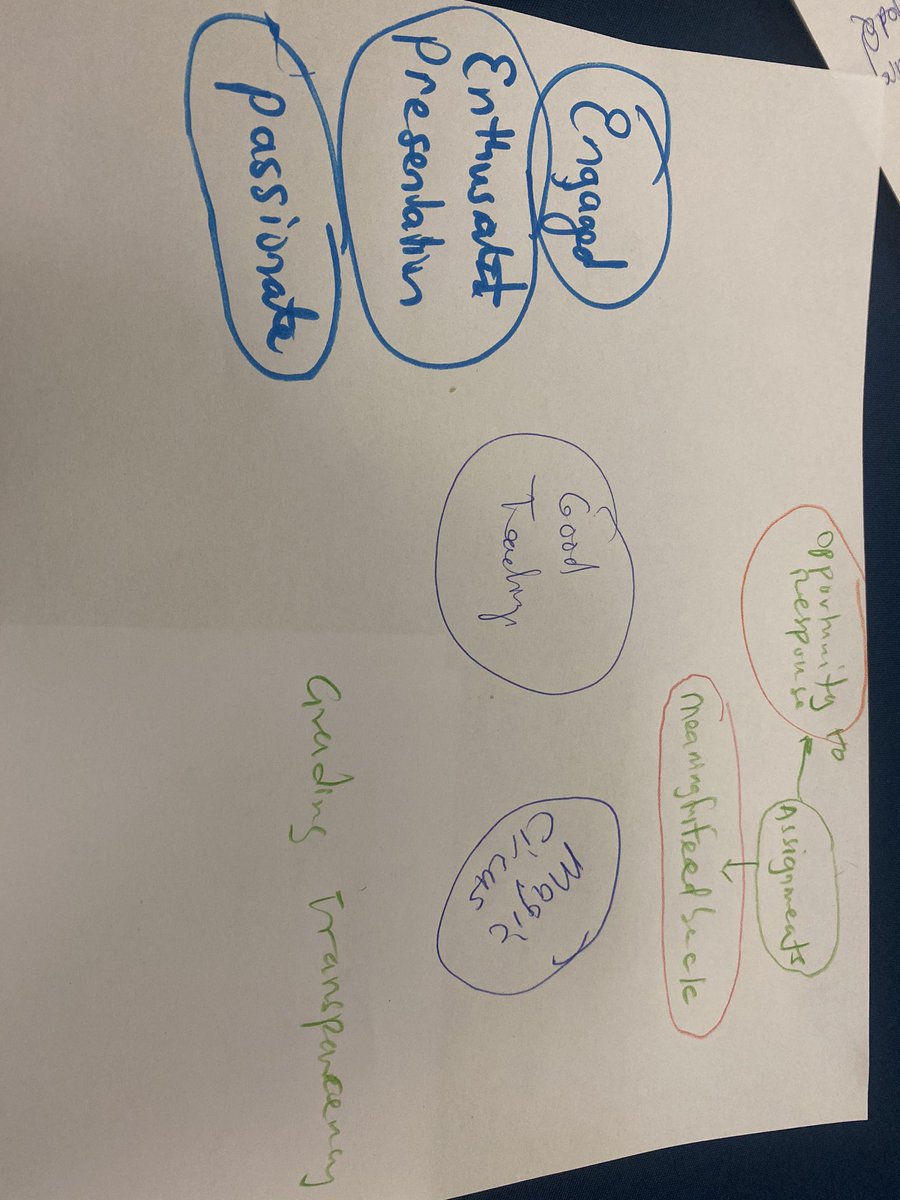 Engaged
Enthusatist
Presentation
Passionate
Good
Teaching
Opportunity to
Response
Assignments
meaningful feedback
Magic
Circles
Grading Transparency